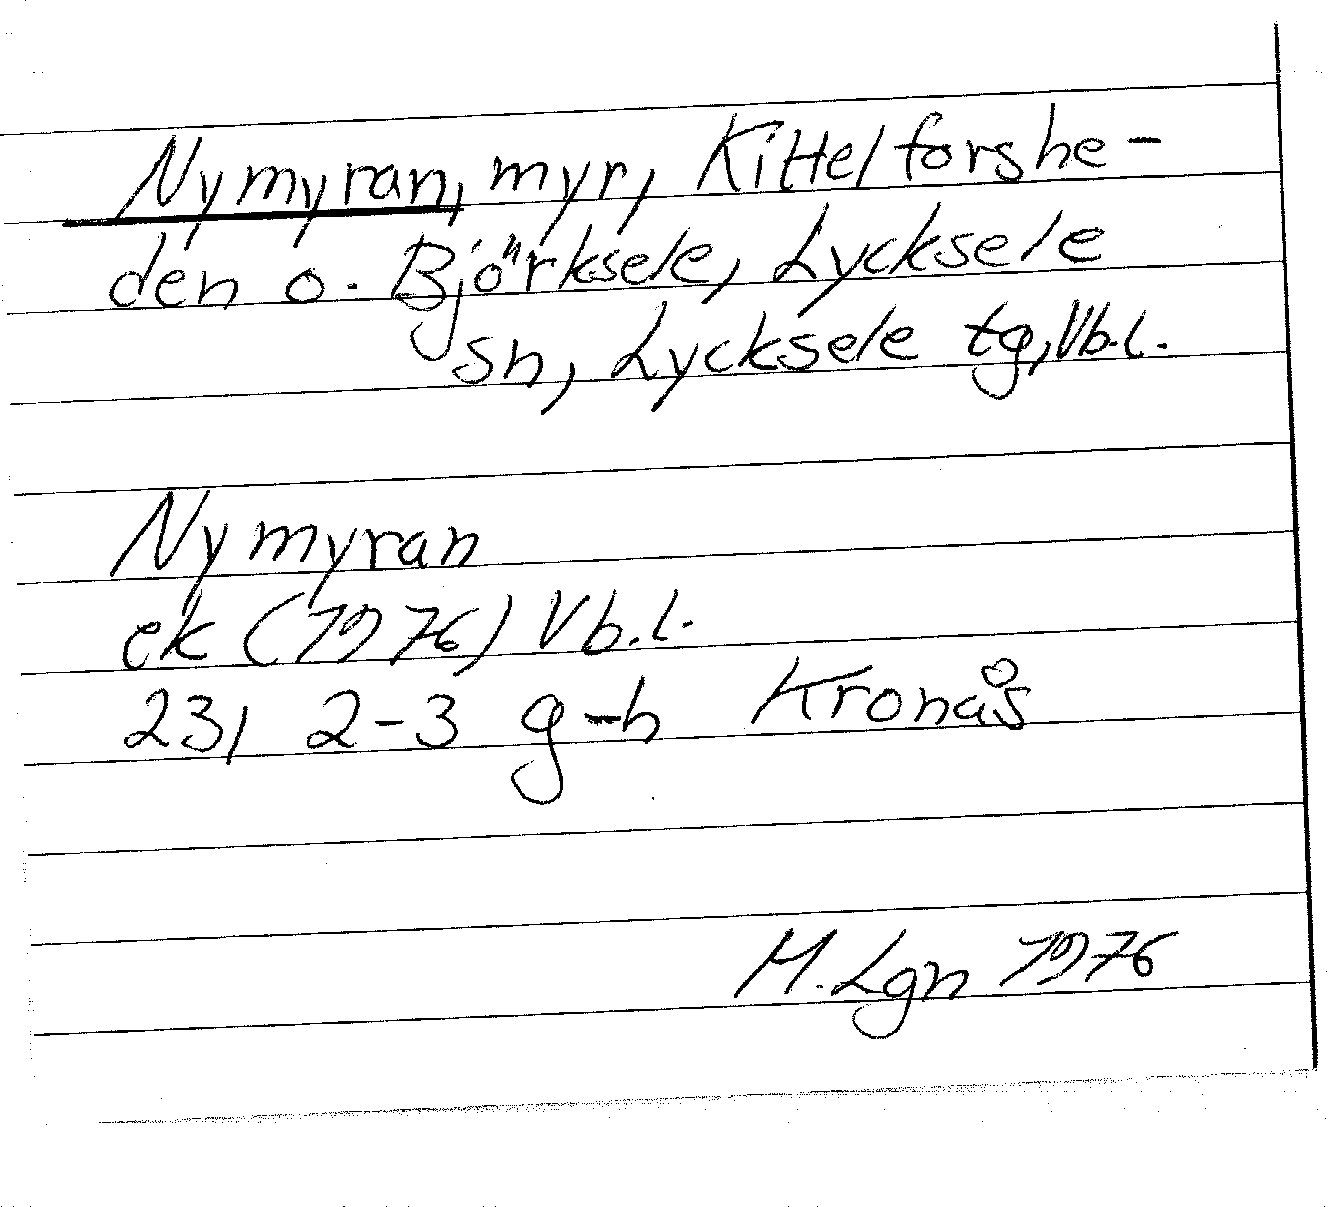 Nymyran, myr, Kittelforshe-
den o. Björksele, Lycksele
sn, Lycksele tg, Vb.l.
Nymyran
ek (1976) Vb.l.
23I 2-3 g-h Kronås
M. Lgn 1976